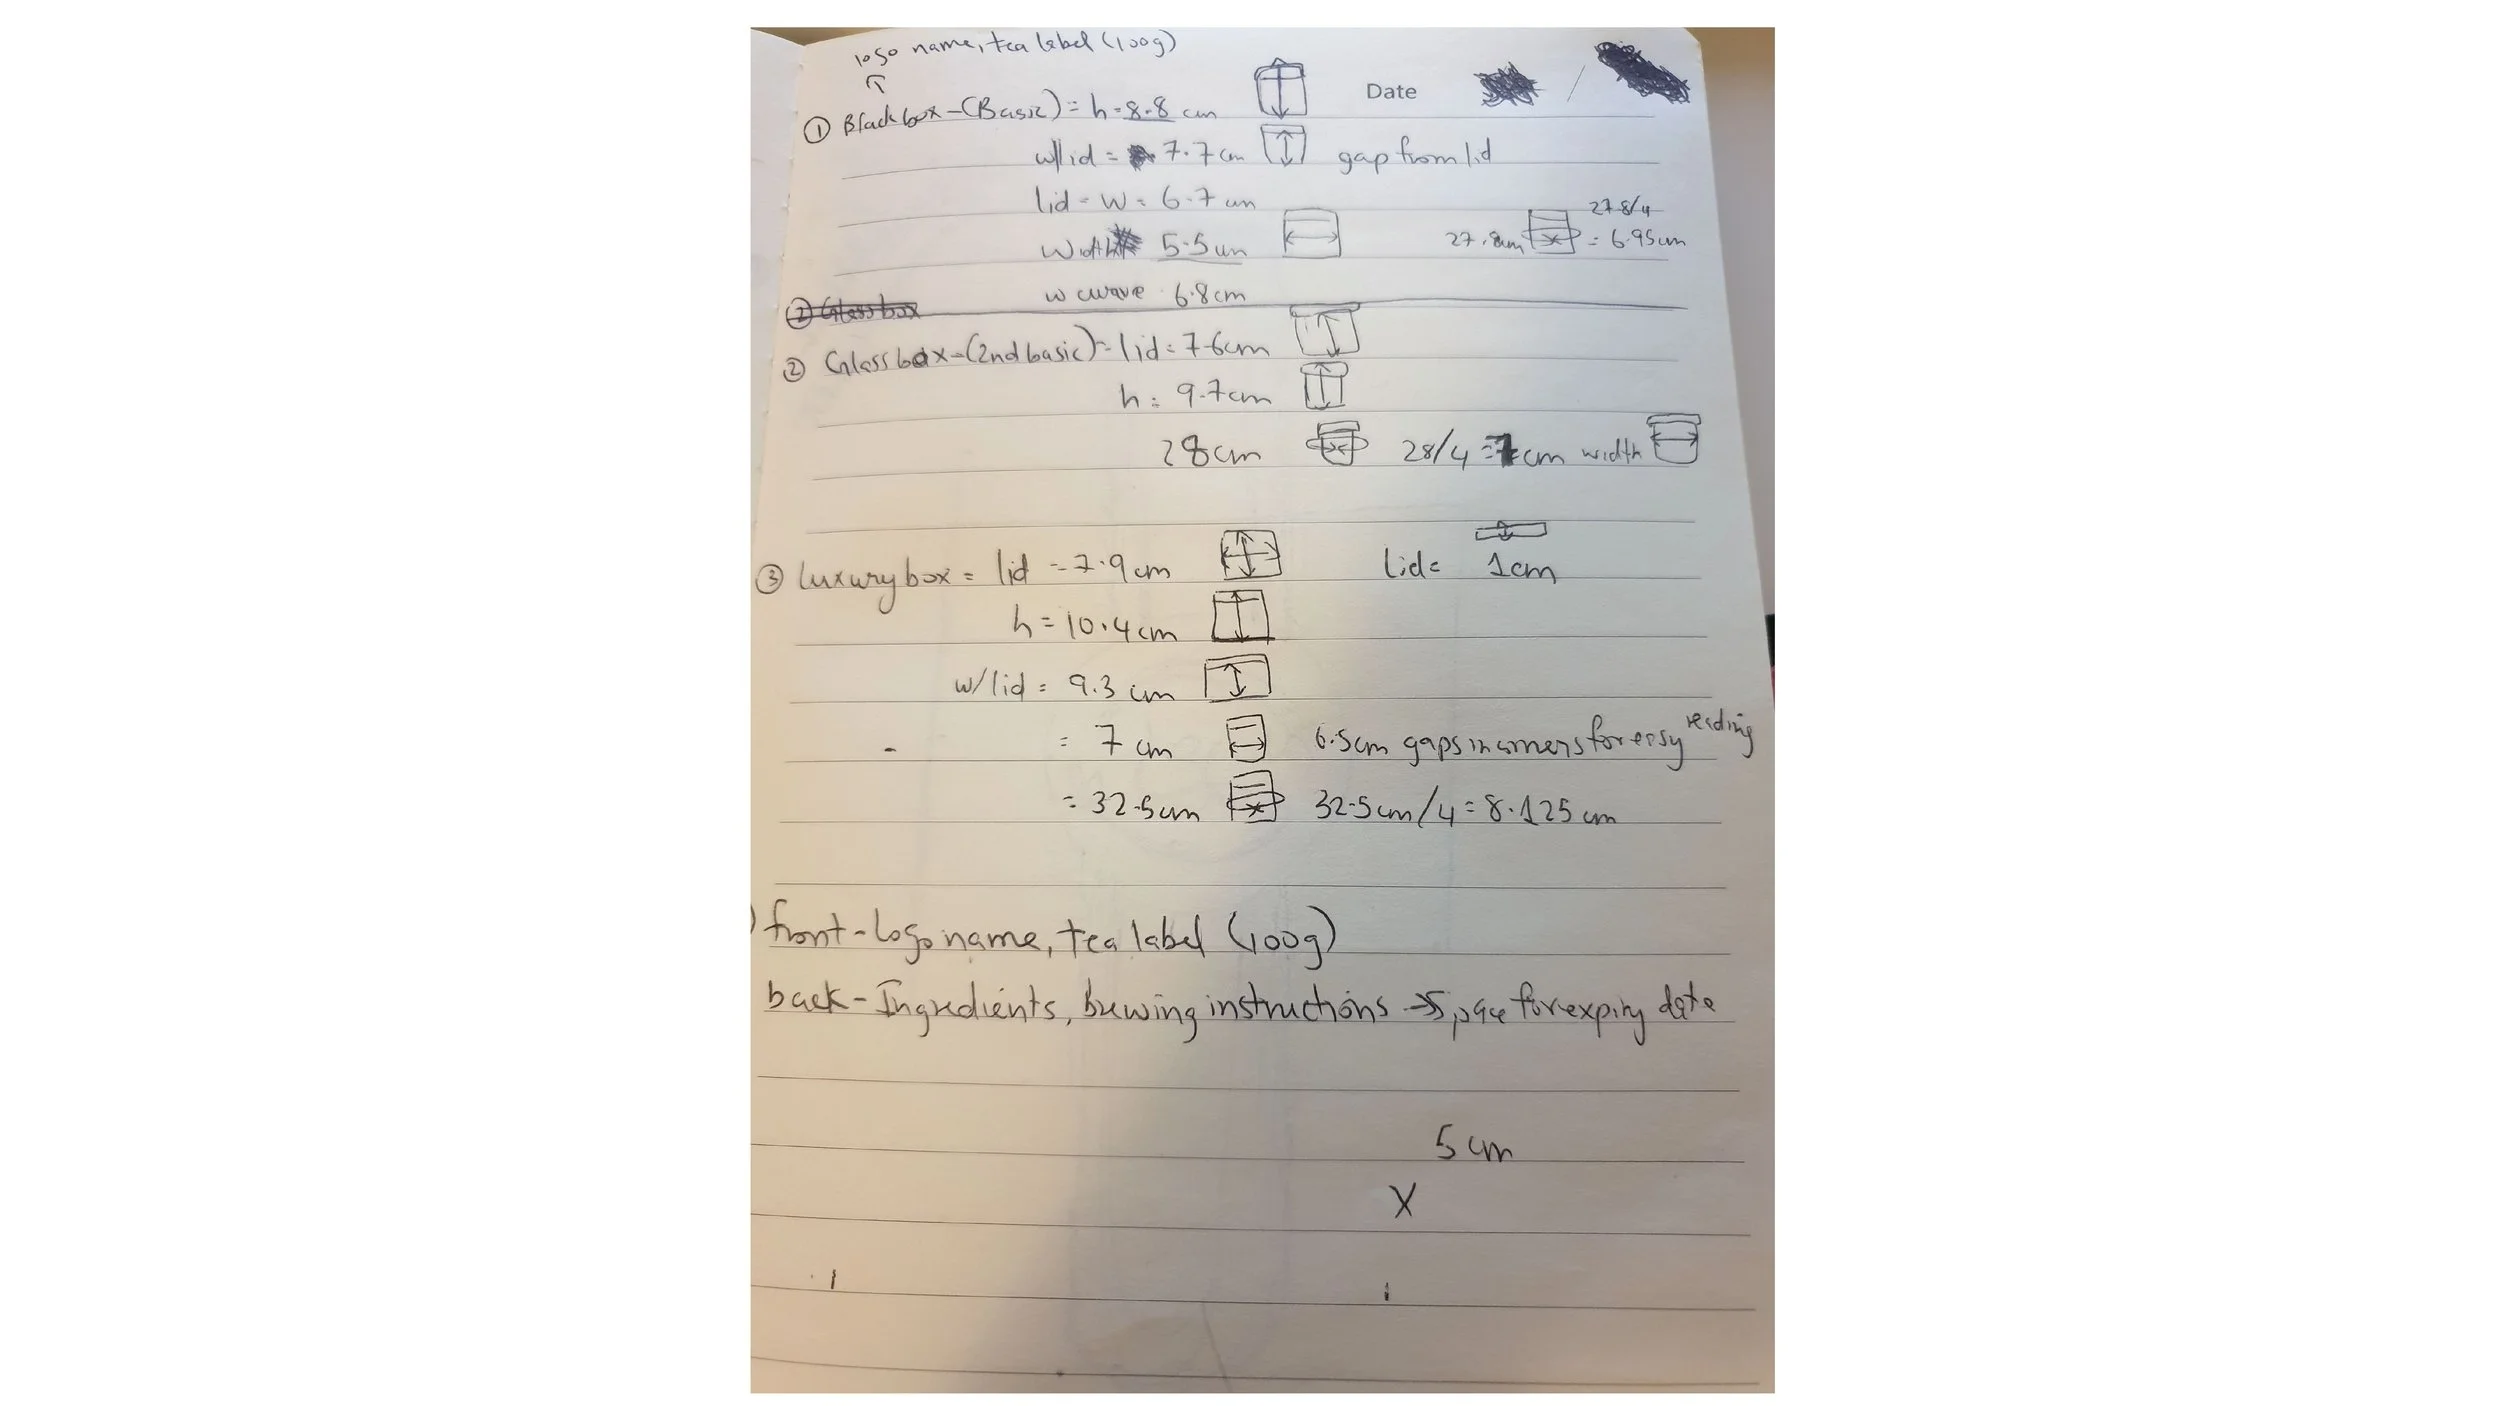 logo name, tea label (100g)
Date
① Black box - (Basic) = h = 8.8 cm
w/lid = 7.7 cm gap from lid
lid = w = 6.7 cm
27.8/4
Width 5.5 cm 27.8cm = 6.95cm
w curve 6.8cm
② Glass box
② Glass box - (2nd basic) = lid = 7.6cm
h = 9.7cm
28cm 28/4 = 7cm width
③ Luxury box = lid = 7.9cm lid = 1cm
h = 10.4cm
w/lid = 9.3 cm
= 7 cm 6.5cm gaps in corners for easy reading
= 32.5cm 32.5cm/4 = 8.125 cm
) front - Logo name, tea label (100g)
back - Ingredients, brewing instructions → Space for expiry date
5 cm
X